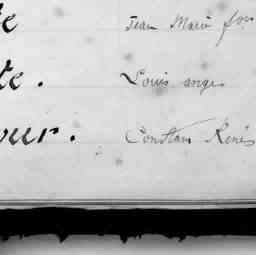 te Jean Marie
te. Louis ange
our. Constan René